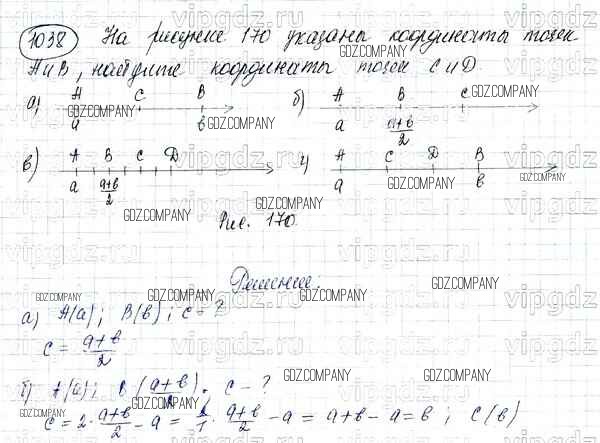 1038 На рисунке 170 указаны координаты точек
А и В, найдите координаты точек С и D.
а) A C B
a b
б) A B C
a (a+b)/2
в) A B C D
a (a+b)/2
г) A C D B
a b
Рис. 170.
Решение:
а) A(a); B(b); c - ?
c = (a+b)/2
б) A(a); B((a+b)/2). c - ?
c = 2·(a+b)/2 - a = 2/1 · (a+b)/2 - a = a+b-a = b; C(b)
GDZ.COMPANY
vipgdz.ru